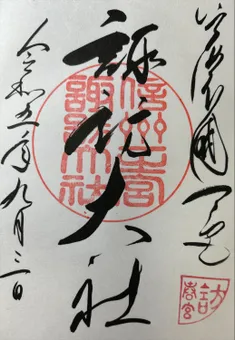 信濃國一之宮
諏訪大社
令和五年九月三日
信州一之宮
諏訪大社
諏訪
春宮